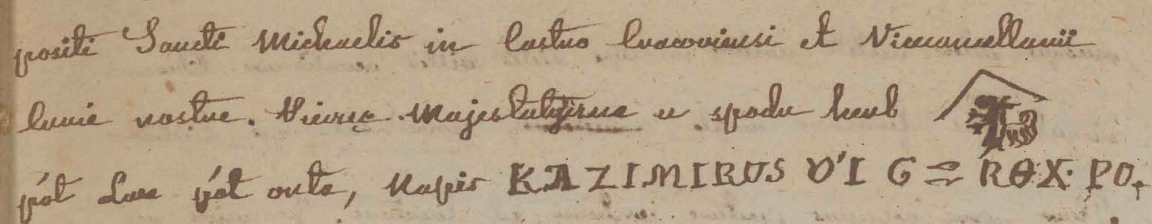 positi Sancti Michaelis in Castro Cracoviensi et Vicecancellarii
Curie nostre. Pieczę. Majestatyczna u spodu herb
pół Lwa pół orła, Napis KAZIMIRUS D'I G = REX. PO.